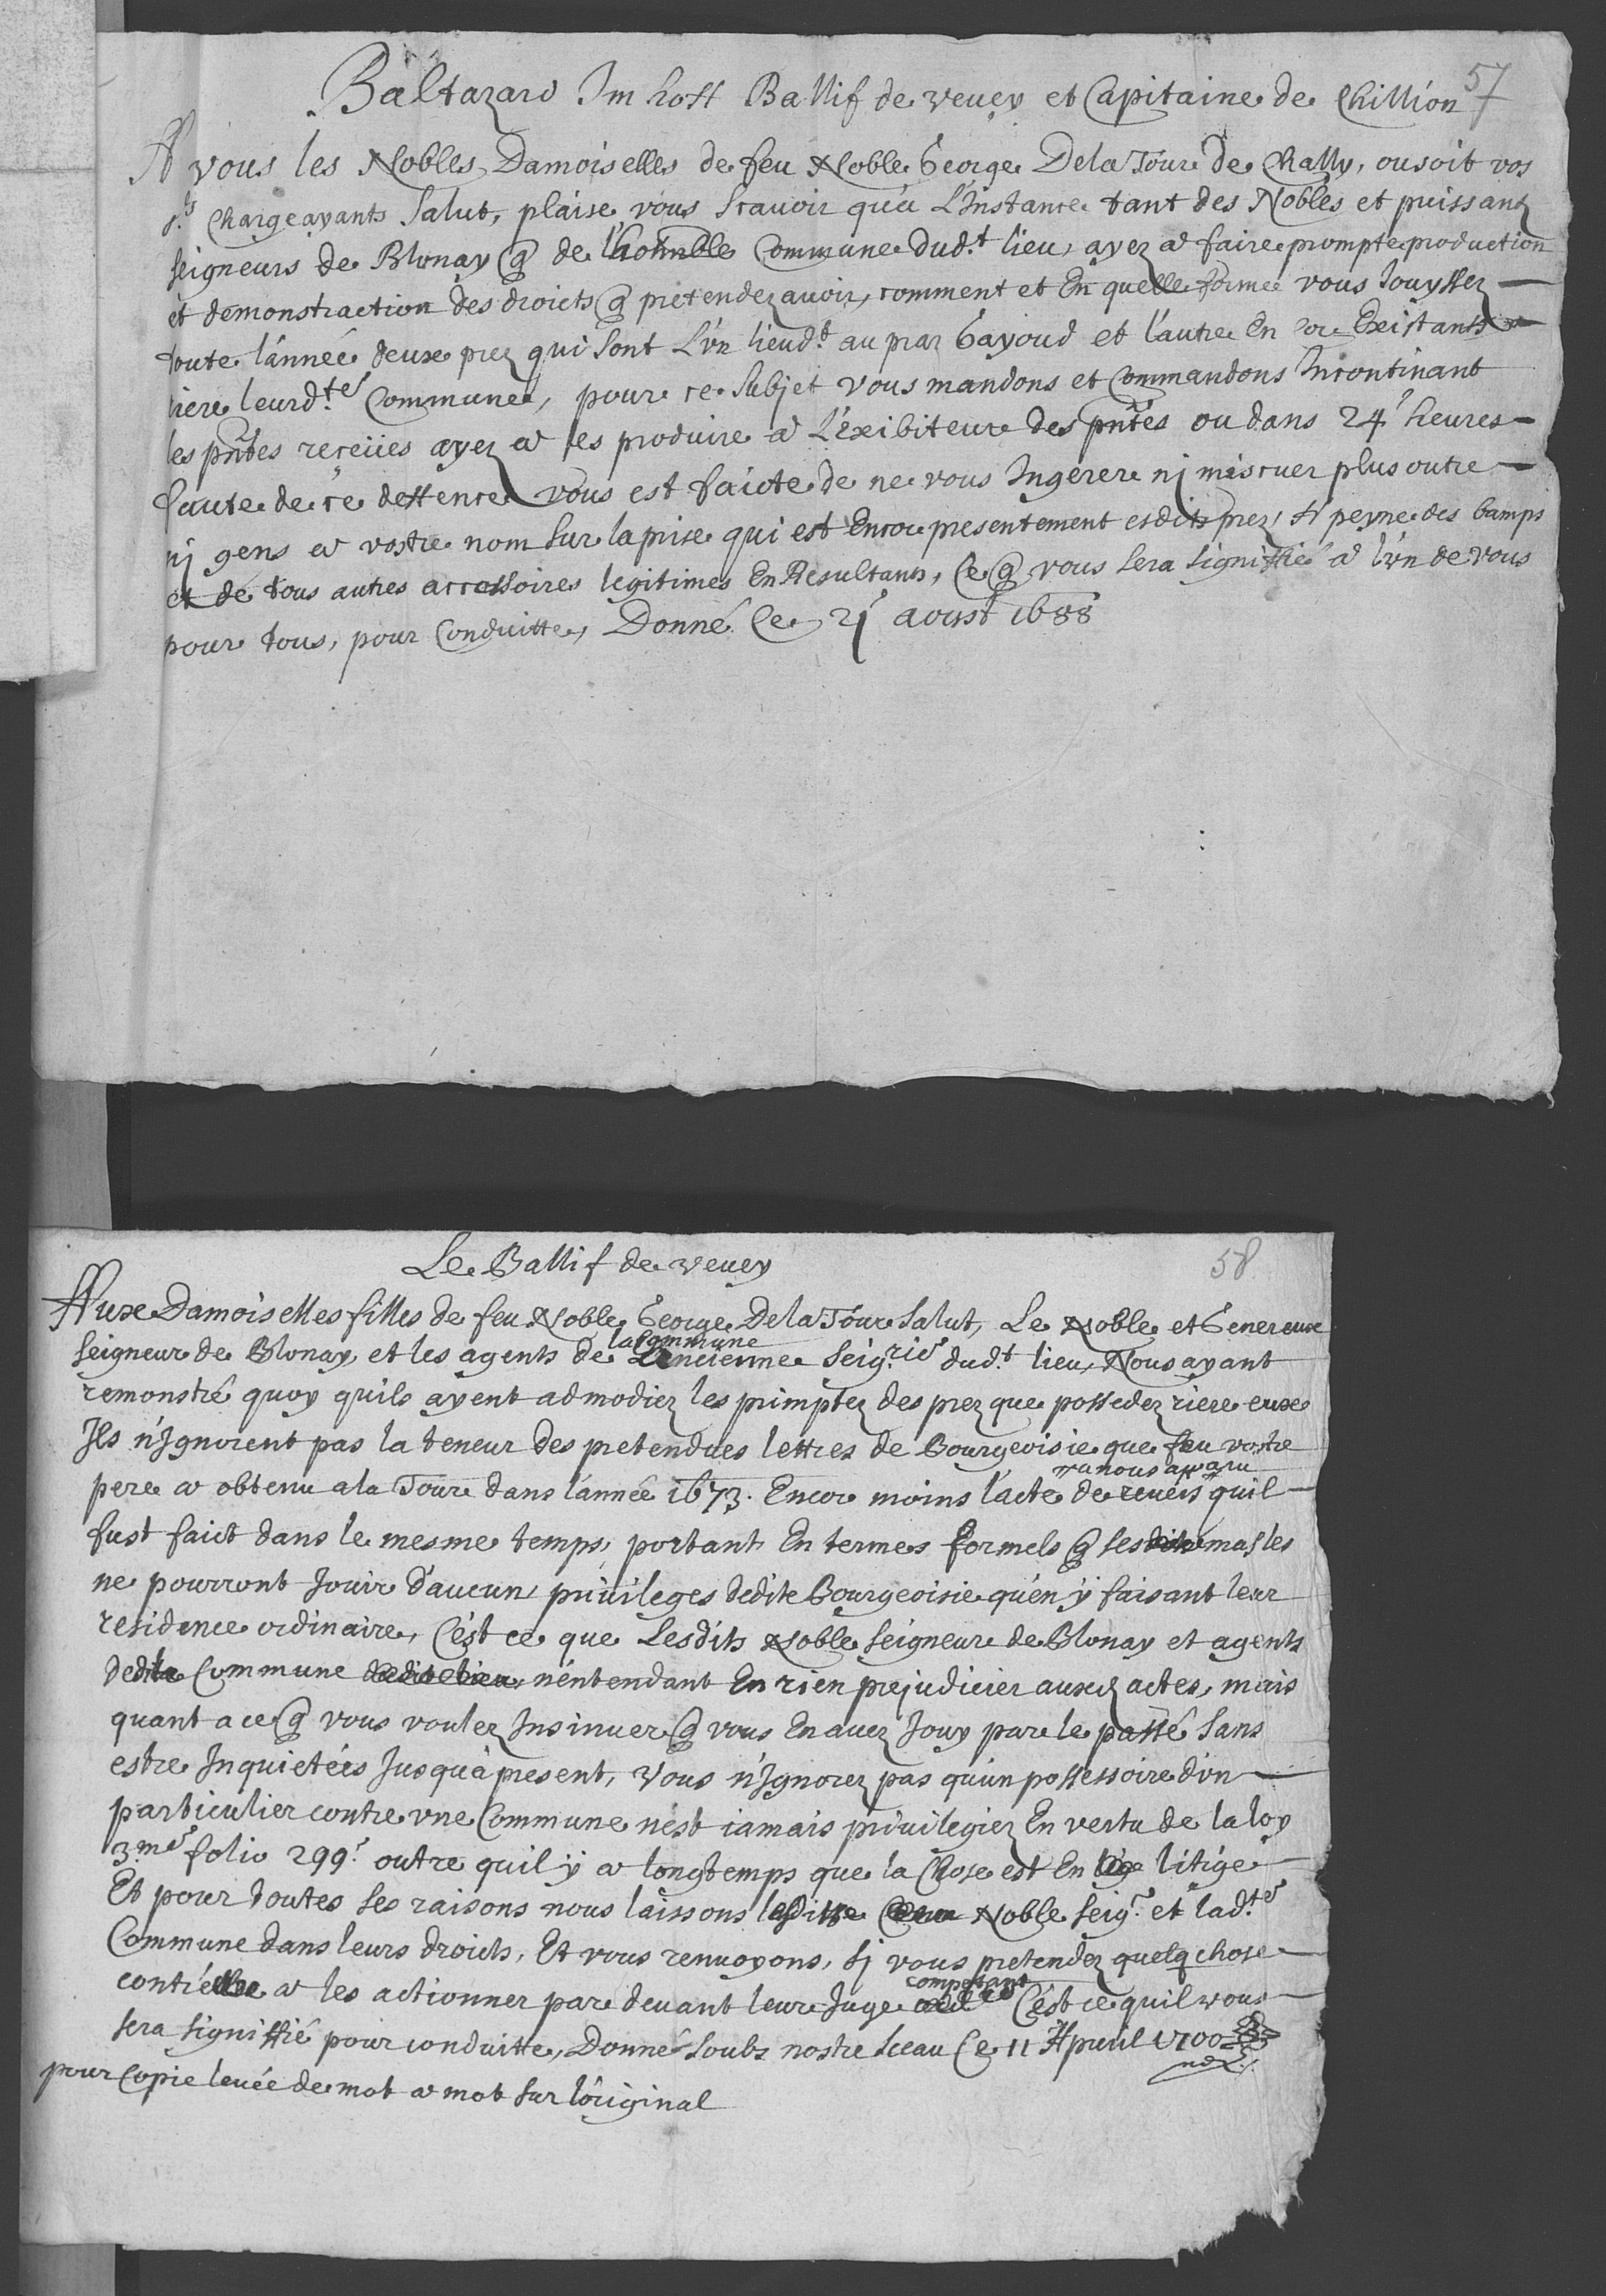 57
Baltazard Im hoff Ballif de vevey et Capitaine de Chillion
A vous les Nobles Damoiselles de feu Noble George Dela Tour de Chally, ousoit vos
Chargeayants Salut, plaise vous scavoir qu'a L'Instance tant des Nobles et puissans
seigneurs de Blonay q de l'honnble Commune dud.t lieu, ayez a faire prompte production
et demonstraction des droicts q pretendez avoir, comment et En quelle forme vous Jouyssez
toute l'année deux prez qui sont L'vn lieud.t au praz Gayoud et l'autre En Existants
riere leurd.te Commune, pour ce subjet vous mandons et Commandons Incontinant
les pntes receües ayez a les produire a L'exibiteur des pntes ou dans 24 heures
faute de ce deffence vous est faicte de ne vous Ingerer nj miscuer plus outre
nj gens a vostre nom sur la prise qui est Encor presentement esdits prez, A peyne des bamps
et de tous autres accessoires legitimes En Resultants, Ce q vous sera signiffié a l'vn de vous
pour tous, pour Conduitte, Donné Ce 21 aoust 1688
58
Le Ballif de vevey
Aux Damoiselles filles de feu Noble George Dela Tour Salut, Le Noble et Genereux
la Commune
seigneur de Blonay et les agents de L'encienne Seig.rie dud.t lieu, Nous ayant
remonstré quoy quils ayent admodiez les primptez des prez que possedez riere eux
Ils n'Ignorent pas la teneur des pretendues lettres de Bourgeoisie que feu vostre
nous apparu
pere a obtenu a la Tour dans l'année 1673. Encor moins l'acte de revers quil
fust faict dans le mesme temps, portant En termes formels q ses masles
ne pourront Jouir d'aucun privileges dedite Bourgeoisie qu'en ÿ faisant leur
residence ordinaire, C'est ce que Lesdits Noble seigneur de Blonay et agents
dedite Commune n'entendant En rien prejudicier auxd actes, mais
quant a ce q vous voulez Insinuer q vous En avez Jouy par le passé sans
estre Inquietées Jusqu'à present, vous n'Ignorez pas qu'un possessoire d'vn
particulier contre vne Commune n'est iamais privilegiez En vertu de la loy
3.me folio 299. outre quil ÿ a longtemps que la Chose est En litige
Et pour toutes ses raisons nous laissons Noble seig.r et lad.te
Commune dans leurs droicts, Et vous renvoyons, sj vous pretendez quelq chose
competant
contre a les actionner par devant leur Juge C'est ce quil vous
sera signiffié pour conduitte, Donné soubs nostre sceau Ce 11 Apvril 1700
pour Copie levée de mot a mot sur l'original